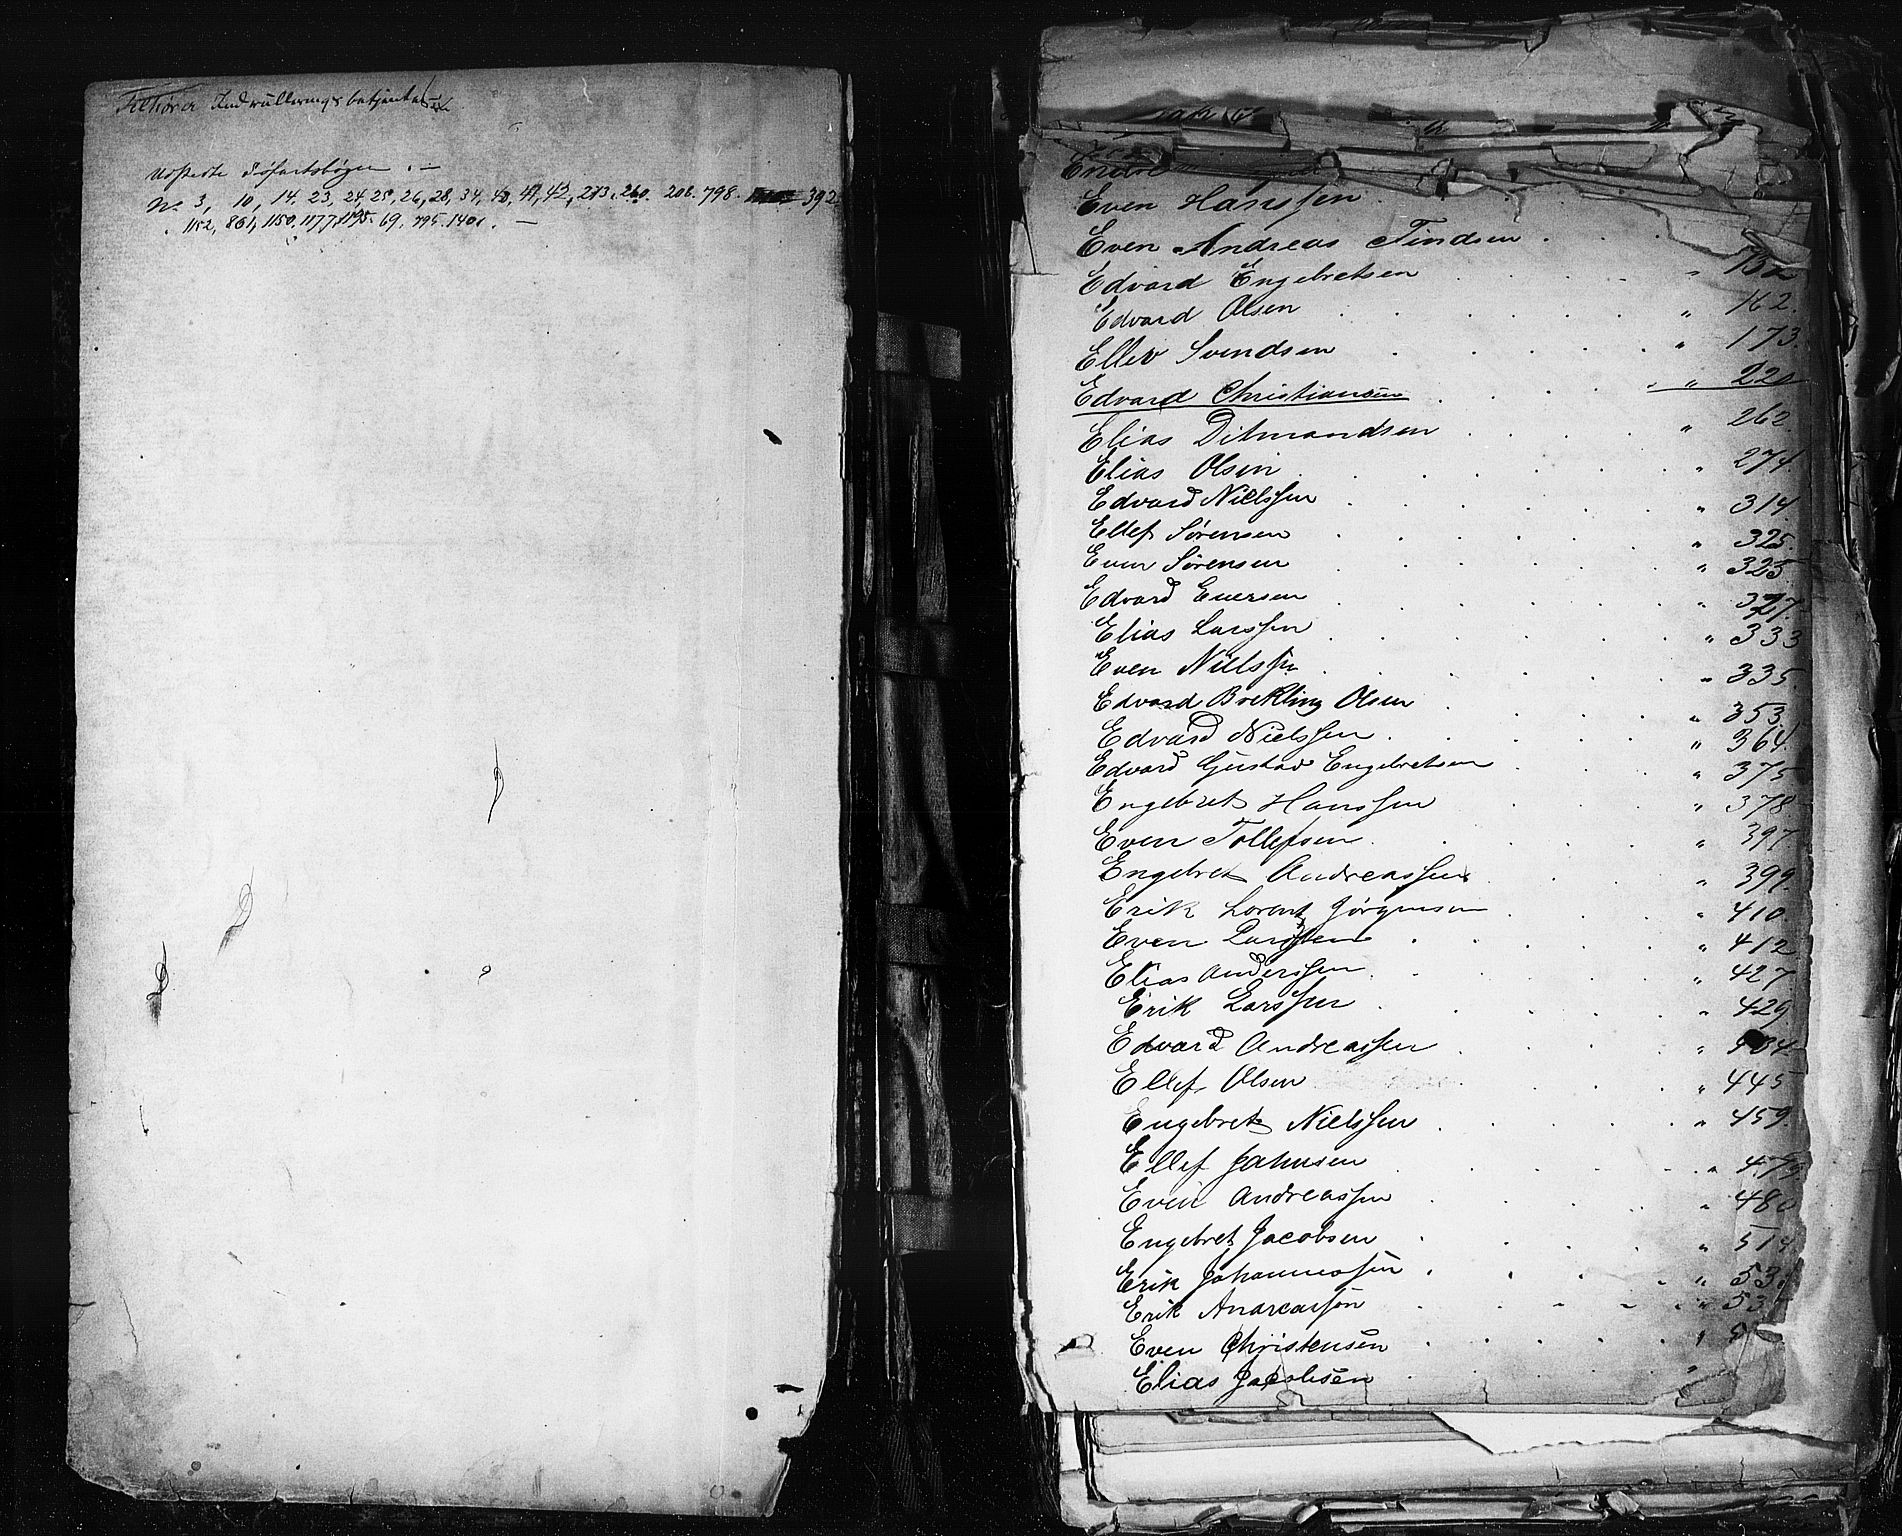 Tilhører Indrulleringsbetjenten
Udstedte Søfartsbøger. —
No 3, 10, 14. 23, 24, 25, 26, 28, 34, 40, 41, 42, 273, 260. 208. 798. 392.
1152, 861, 1150. 1177. 1195. 69. 795. 1401. —
Endre
Even Hanssen
Even Andreas Findsen
Edvard Engebretsen " 132
Edvard Olsen " 162.
Ellev Svendsen " 173.
Edvard Christiansen " 220
Elias Ditmandsen " 262
Elias Olsen " 274.
Edvard Nielssen " 314.
Ellef Sørensen " 325.
Even Sørensen " 325
Edvard Evensen " 327.
Elias Larssen " 333
Even Nielssen " 335.
Edvard Brekling Olsen " 353.
Edvard Nielssen " 364.
Edvard Gustav Engebretsen " 375
Engebret Hanssen " 378
Even Tollefsen " 397.
Engebret Andreassen " 399.
Erik Lorentz Jørgensen " 410.
Even Larssen " 412
Elias Anderssen " 427.
Erik Larssen " 429.
Edvard Andreassen " 434
Ellef Olsen " 445
Engebret Nielssen " 459.
Ellef Jahnsen " 479.
Even Andreassen " 480
Engebret Jacobsen " 514
Erik Johannessen " 53
Erik Andreassen " 53
Even Christensen " 5
Elias Jacobsen "